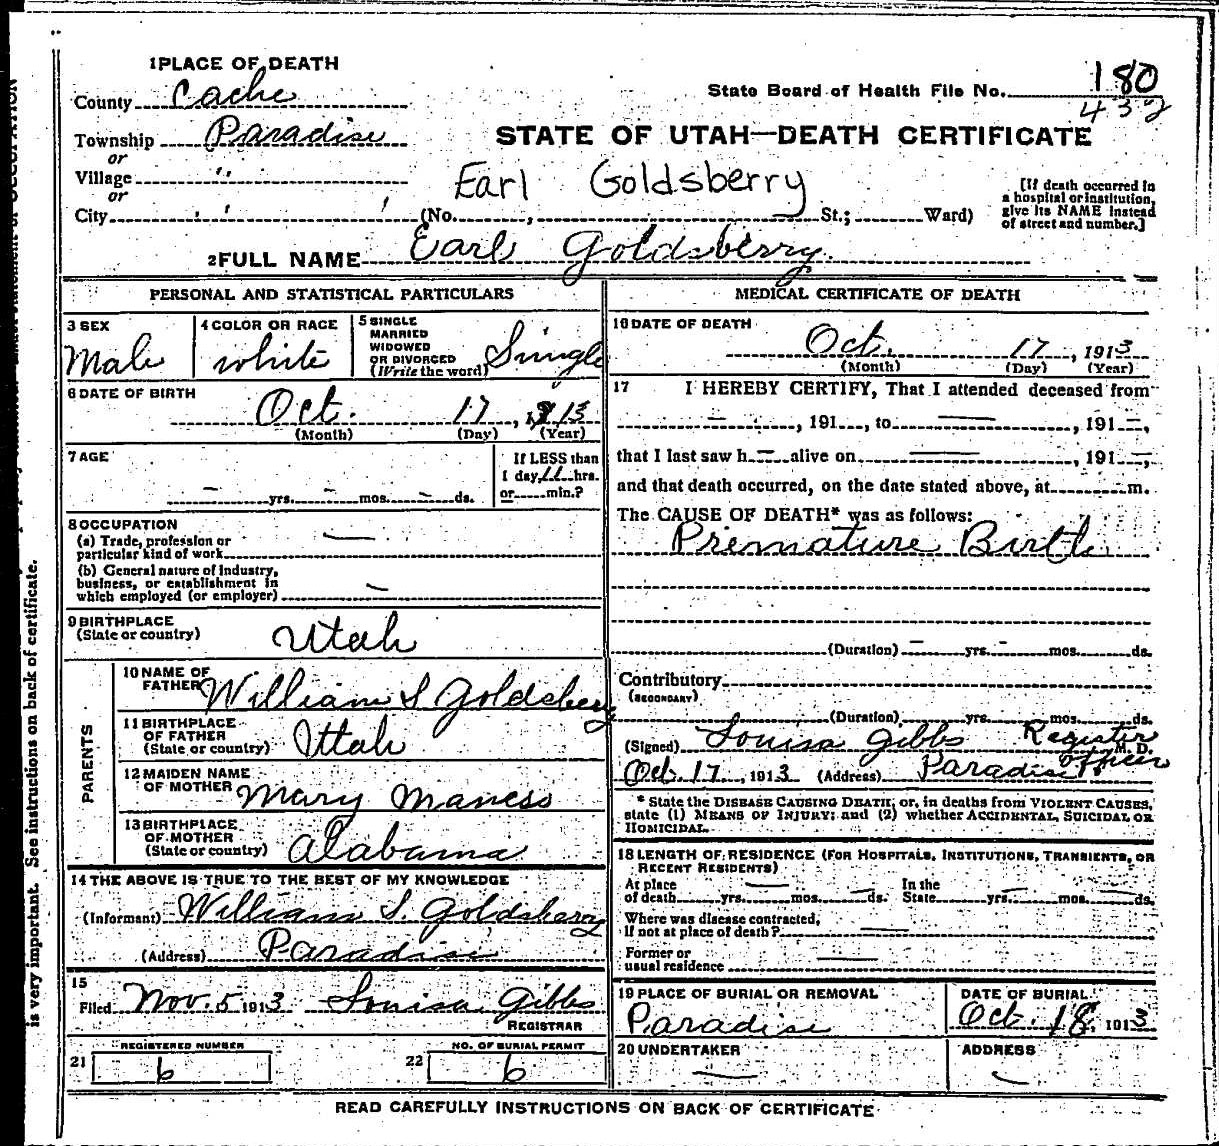 1 PLACE OF DEATH
County Cache
State Board of Health File No. 180
432
Township Paradise
STATE OF UTAH—DEATH CERTIFICATE
or
Village "
or
City " (No. , St.; Ward)
Earl Goldsberry
[If death occurred in
a hospital or institution,
give its NAME instead
of street and number.]
2 FULL NAME Earl Goldsberry.
PERSONAL AND STATISTICAL PARTICULARS
3 SEX
Male
4 COLOR OR RACE
White
5 SINGLE
MARRIED
WIDOWED
OR DIVORCED
(Write the word)
Single
6 DATE OF BIRTH
Oct. 17, 1913
(Month) (Day) (Year)
7 AGE
— yrs. — mos. — ds.
If LESS than
1 day, 11 hrs.
or min.?
8 OCCUPATION
(a) Trade, profession or
particular kind of work —
(b) General nature of Industry,
business, or establishment in
which employed (or employer) —
9 BIRTHPLACE
(State or country) Utah
PARENTS
10 NAME OF
FATHER William S Goldsberry
11 BIRTHPLACE
OF FATHER
(State or country) Utah
12 MAIDEN NAME
OF MOTHER Mary Maness
13 BIRTHPLACE
OF MOTHER
(State or country) Alabama
14 THE ABOVE IS TRUE TO THE BEST OF MY KNOWLEDGE
(Informant) William S. Goldsberry
(Address) Paradise
15
Filed Nov. 5 1913 Louisa Gibbs
REGISTRAR
21 REGISTERED NUMBER
6
22 NO. OF BURIAL PERMIT
6
MEDICAL CERTIFICATE OF DEATH
16 DATE OF DEATH
Oct. 17, 1913
(Month) (Day) (Year)
17 I HEREBY CERTIFY, That I attended deceased from
— , 191 , to — , 191 —,
that I last saw h — alive on — , 191 —,
and that death occurred, on the date stated above, at m.
The CAUSE OF DEATH* was as follows:
Premature Birth
(Duration) — yrs. — mos. — ds.
Contributory
(SECONDARY)
(Duration) yrs. mos. ds.
(Signed) Louisa Gibbs Register M. D.
officer
Oct. 17, 1913 (Address) Paradise
* State the DISEASE CAUSING DEATH; or, in deaths from VIOLENT CAUSES,
state (1) MEANS OF INJURY; and (2) whether ACCIDENTAL, SUICIDAL OR
HOMICIDAL.
18 LENGTH OF RESIDENCE (FOR HOSPITALS, INSTITUTIONS, TRANSIENTS, OR
RECENT RESIDENTS)
At place In the
of death yrs. mos. ds. State yrs. mos. ds.
Where was disease contracted,
If not at place of death? —
Former or
usual residence —
19 PLACE OF BURIAL OR REMOVAL
Paradise
DATE OF BURIAL
Oct. 18, 1913
20 UNDERTAKER
—
ADDRESS
—
READ CAREFULLY INSTRUCTIONS ON BACK OF CERTIFICATE
is very important. See instructions on back of certificate.